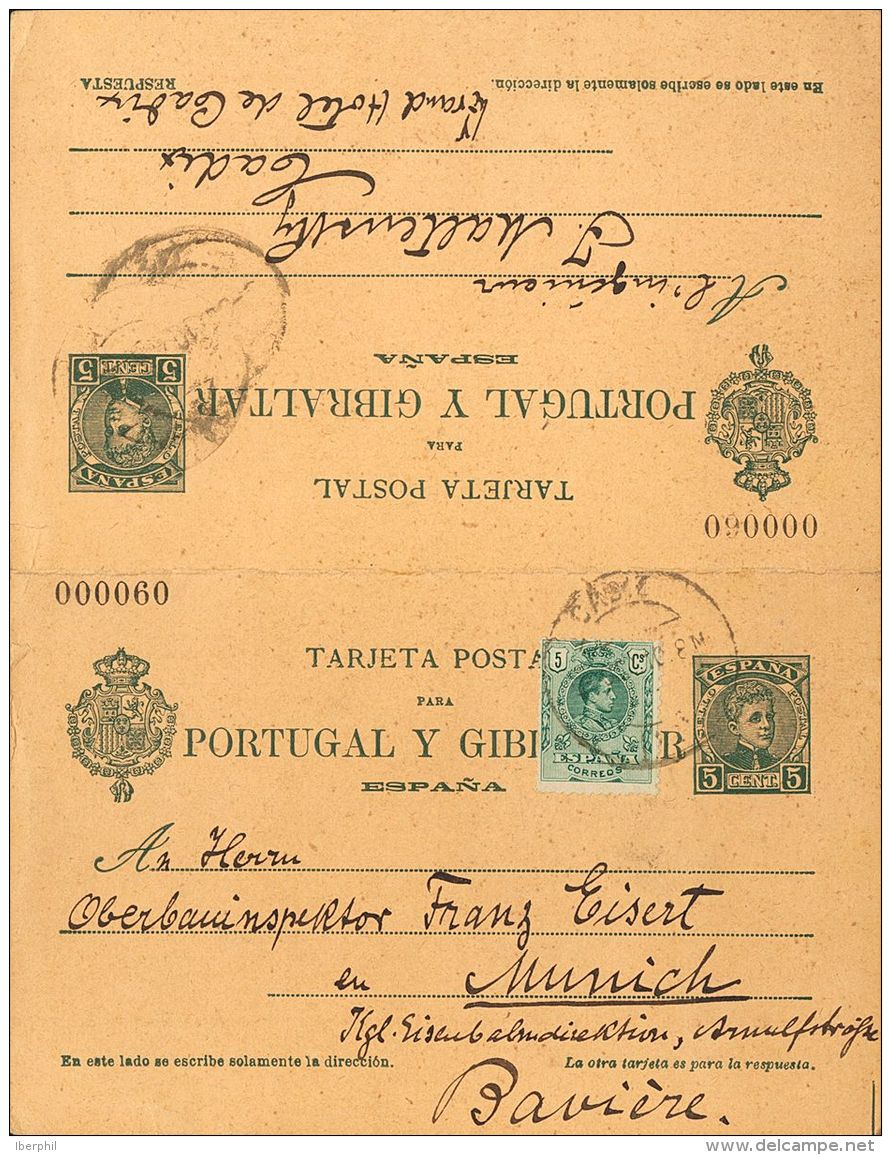 En este lado se escribe solamente la dirección.
RESPUESTA
Grand Hotel de Cadix
Cadix
A l'ingénieur
ESPAÑA
PORTUGAL Y GIBRALTAR
PARA
TARJETA POSTAL
5 CENT. 5
SELLO ESPAÑA POSTAL
000060
000060
TARJETA POSTA
PARA
PORTUGAL Y GIB R
ESPAÑA
5 Cs
ESPAÑA
CORREOS
SELLO ESPAÑA POSTAL
5 CENT. 5
An Herrn
Oberbauinspektor Franz Eisert
en Munich
Kgl. Eisenbahndirektion, Arnulfstraße
En este lado se escribe solamente la dirección.
La otra tarjeta es para la respuesta.
Bavière.
Iberphil
delcampe.net